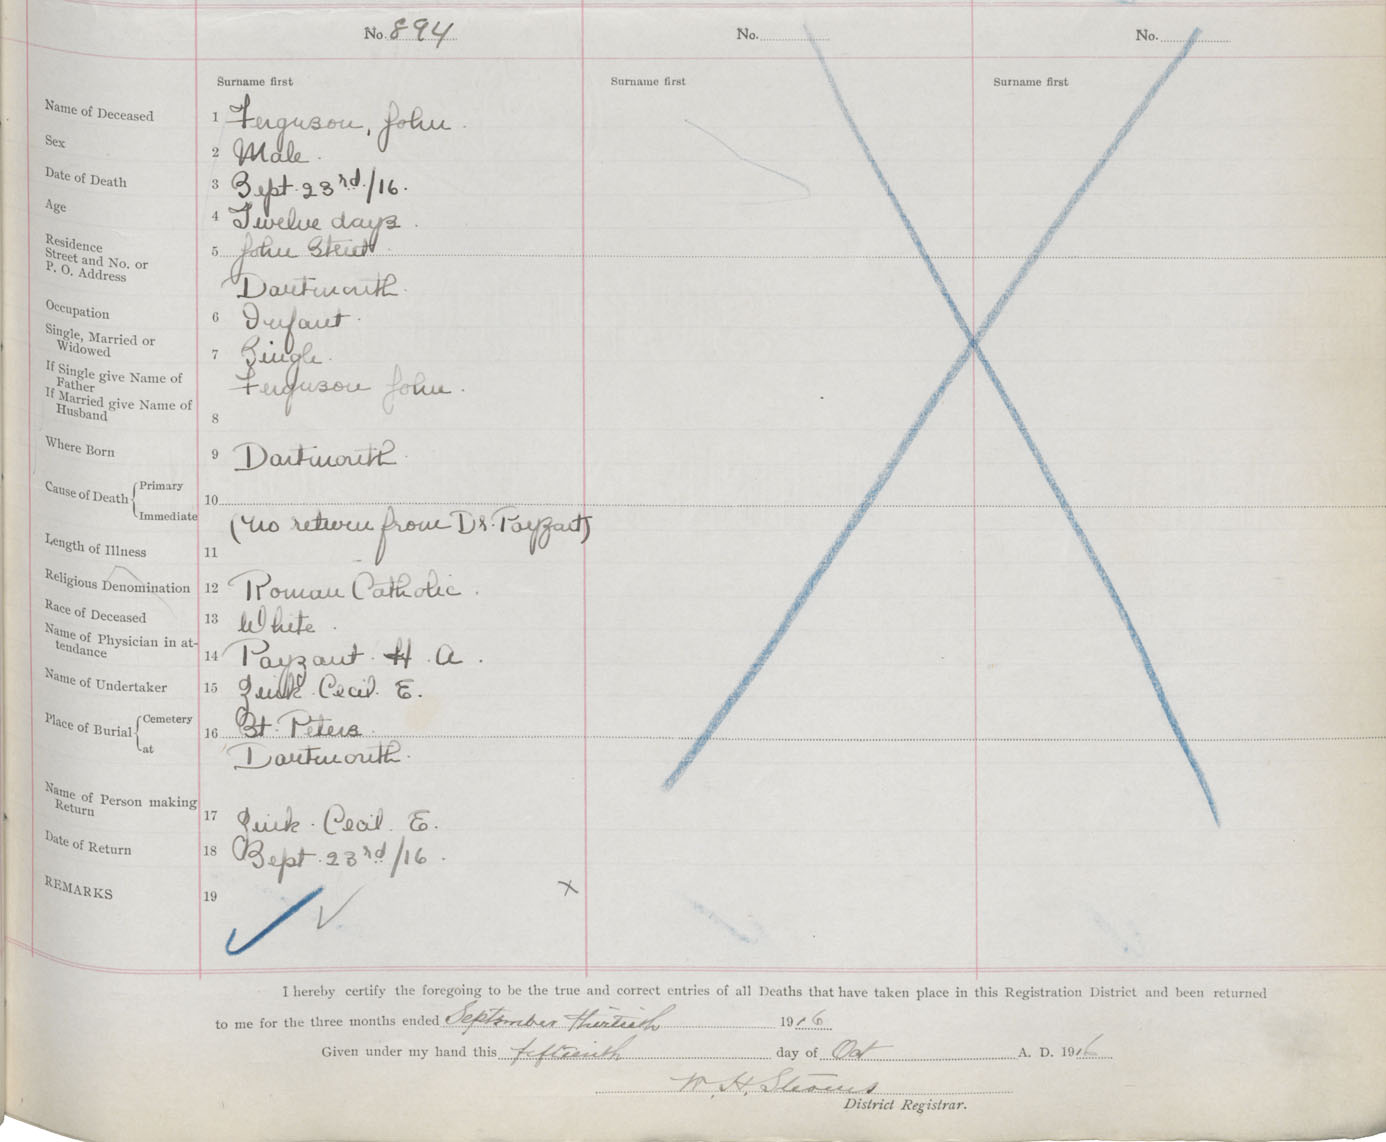 No. 894 No. No.
Surname first Surname first Surname first
Name of Deceased 1 Ferguson, John.
Sex 2 Male.
Date of Death 3 Sept. 23rd/16.
Age 4 Twelve days.
Residence
Street and No. or
P. O. Address 5 John Street
Dartmouth.
Occupation 6 Infant.
Single, Married or
Widowed 7 Single.
If Single give Name of
Father Ferguson John.
If Married give Name of
Husband 8
Where Born 9 Dartmouth.
Cause of Death { Primary 10
Immediate (no return from Dr. Payzant)
Length of Illness 11
Religious Denomination 12 Roman Catholic.
Race of Deceased 13 White.
Name of Physician in at-
tendance 14 Payzant H. A.
Name of Undertaker 15 Zink. Cecil. E.
Place of Burial { Cemetery 16 St. Peters
at Dartmouth.
Name of Person making
Return 17 Zink. Cecil. E.
Date of Return 18 Sept. 23rd/16.
REMARKS 19
I hereby certify the foregoing to be the true and correct entries of all Deaths that have taken place in this Registration District and been returned
to me for the three months ended September thirtieth 1916
Given under my hand this fifteenth day of Oct A. D. 1916
W. H. Stevens
District Registrar.